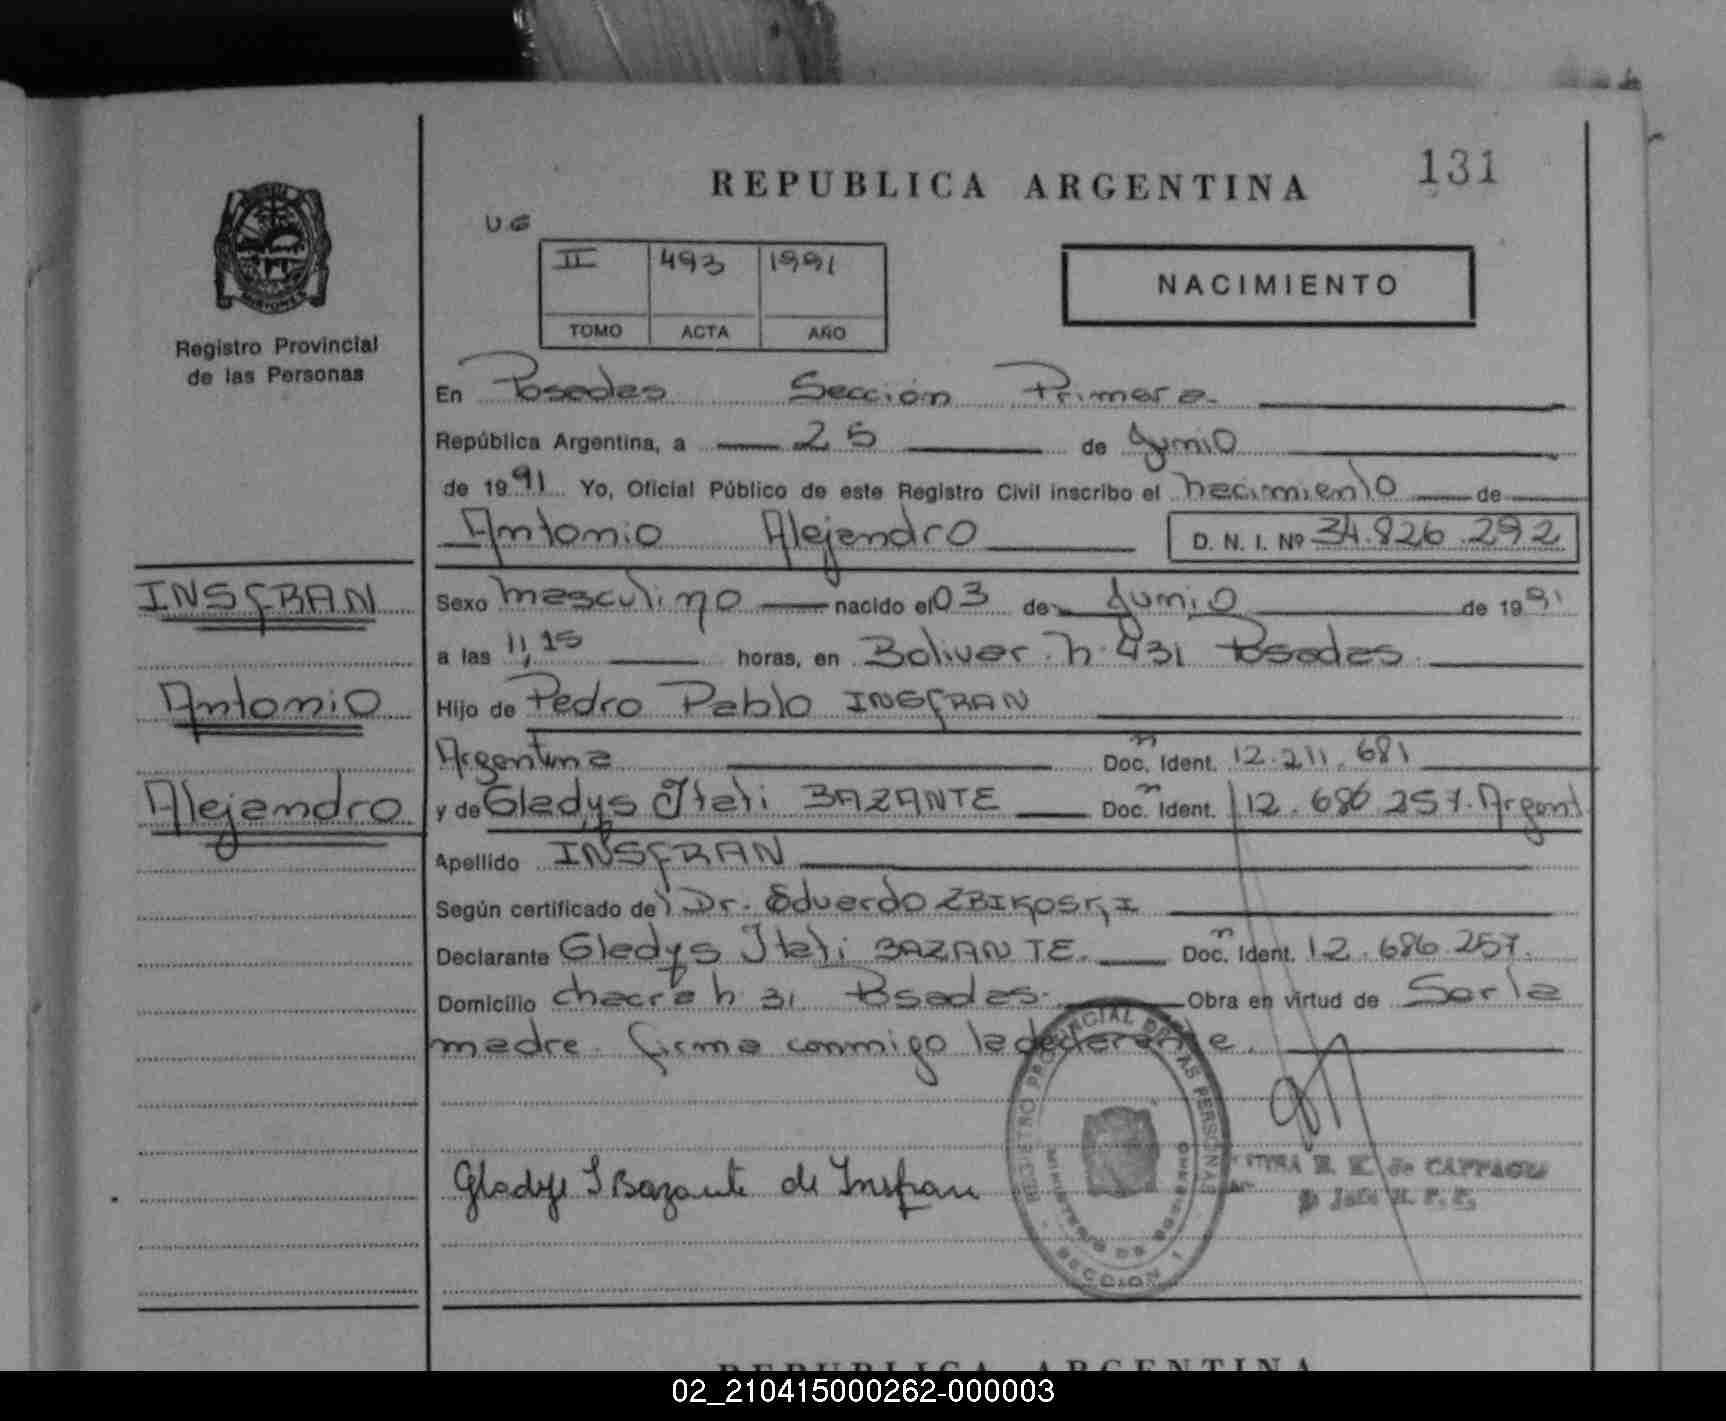 131
REPUBLICA ARGENTINA
U.G
II 493 1991
TOMO ACTA AÑO
NACIMIENTO
MISIONES
Registro Provincial
de las Personas
En Posadas Sección Primera
República Argentina, a 25 de Junio
de 1991 Yo, Oficial Público de este Registro Civil inscribo el nacimiento de
Antonio Alejandro D. N. I. Nº 34.826.292
INSFRAN
Sexo masculino nacido el 03 de Junio de 1991
a las 11,15 horas, en Bolivar n. 431 Posadas.
Antonio
Hijo de Pedro Pablo INSFRAN
Argentina Doc. Ident. 12.211.681
Alejandro
y de Gladys Itati BAZANTE Doc. Ident. 12.686.257. Argent
Apellido INSFRAN
Según certificado de Dr. Eduardo ZBIKOSKI
Declarante Gladys Itati BAZANTE. Doc. Ident. 12.686.257.
Domicilio chacra n 31 Posadas. Obra en virtud de Ser la
madre. firma conmigo la declarante.
REGISTRO PROVINCIAL DE LAS PERSONAS
MINISTERIO DE GOBIERNO
SECCION 1
Gladys I Bazante de Insfran
REPUBLICA ARGENTINA
02_210415000262-000003